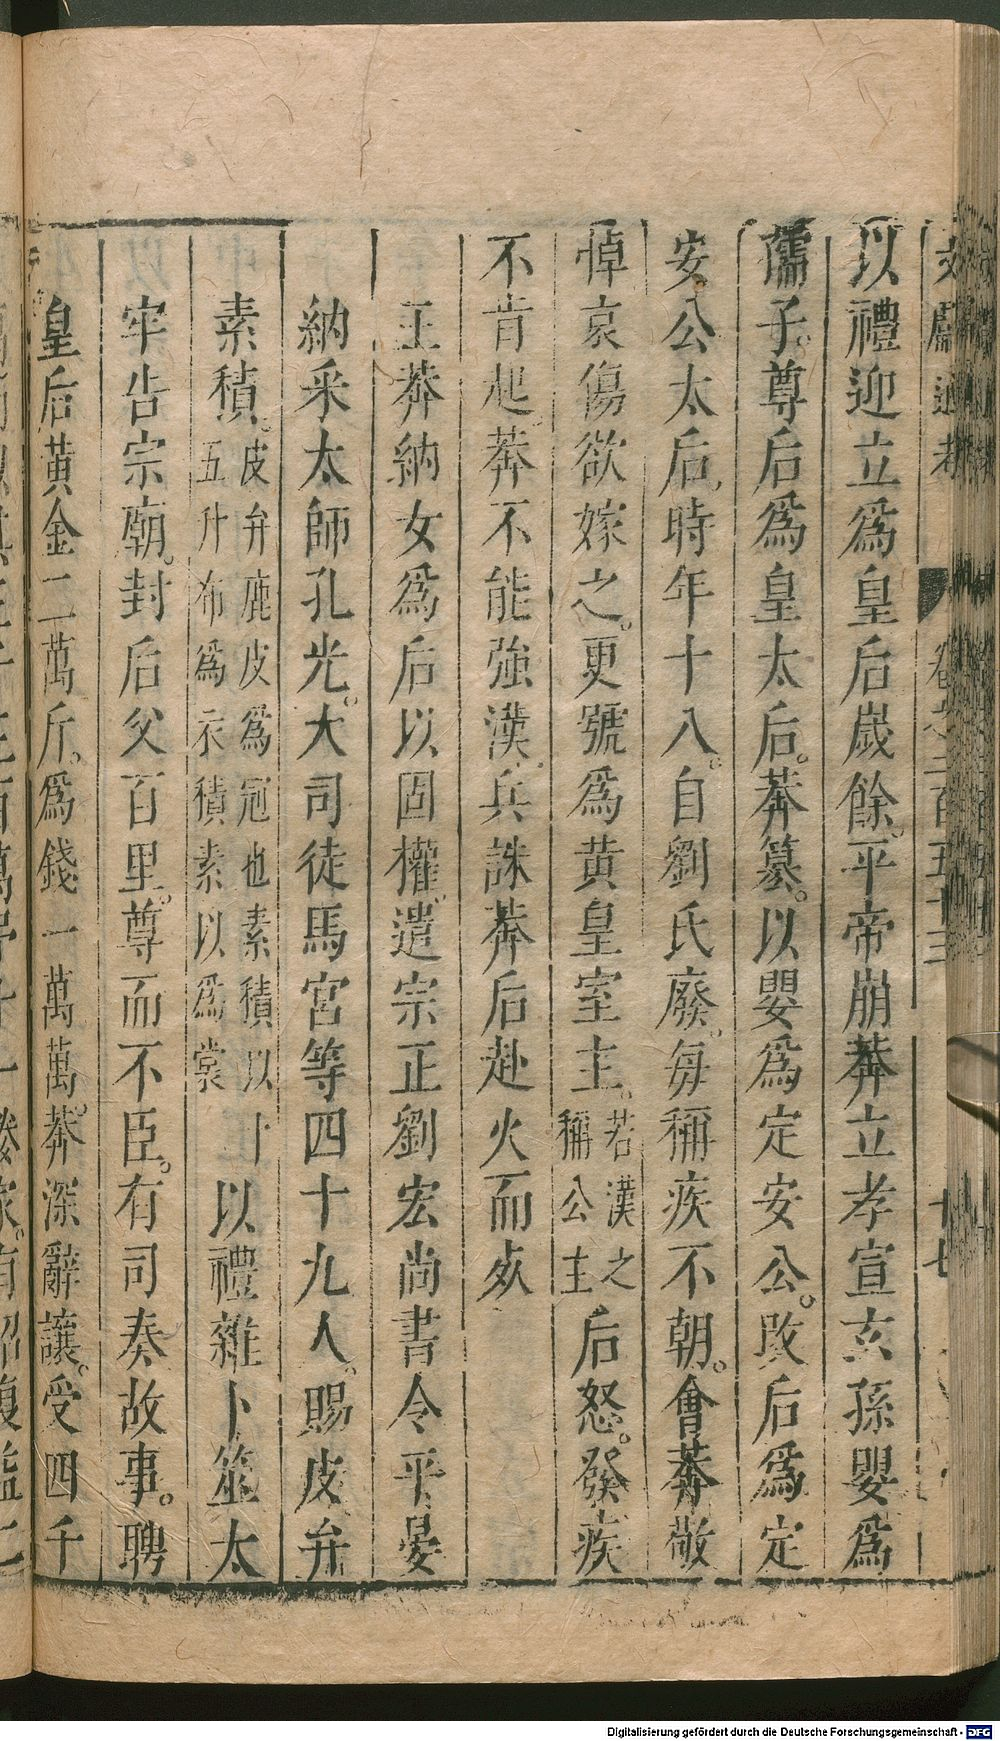 文獻通考 卷之二百五十三 十七
以禮迎立爲皇后歲餘平帝崩莽立孝宣玄孫嬰爲
孺子尊后爲皇太后莽篡以嬰爲定安公改后爲定
安公太后時年十八自劉氏廢每稱疾不朝會莽敬
悼哀傷欲嫁之更號爲黄皇室主若漢之稱公主后怒發疾
不肯起莽不能強漢兵誅莽后赴火而死
王莽納女爲后以固權遣宗正劉宏尚書令平晏
納采太師孔光大司徒馬宮等四十九人賜皮弁
素積皮弁鹿皮爲冠也素積以十五升布爲衣積素以爲裳以禮雜卜筮太
牢告宗廟封后父百里尊而不臣有司奏故事聘
皇后黄金二萬斤爲錢一萬萬莽深辭讓受四千
Digitalisierung gefördert durch die Deutsche Forschungsgemeinschaft - DFG